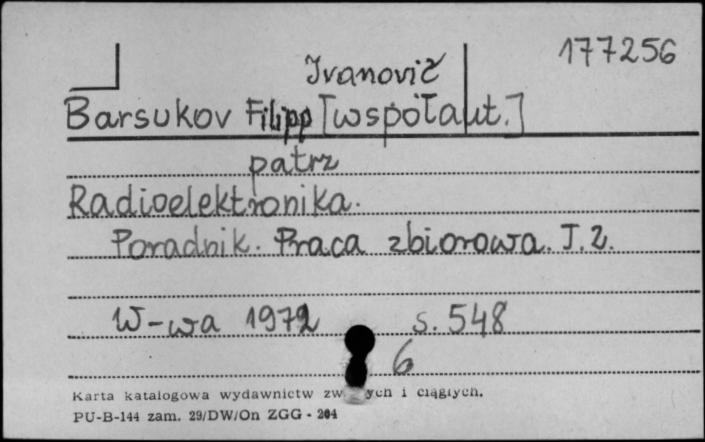 177256
Ivanovič
Barsukov Filipp [współaut.]
patrz
Radioelektronika.
Poradnik. Praca zbiorowa. T. 2.
W-wa 1972 s. 548
6
Karta katalogowa wydawnictw i ciągłych.
PU-B-144 zam. 29/DW/On ZGG - 204